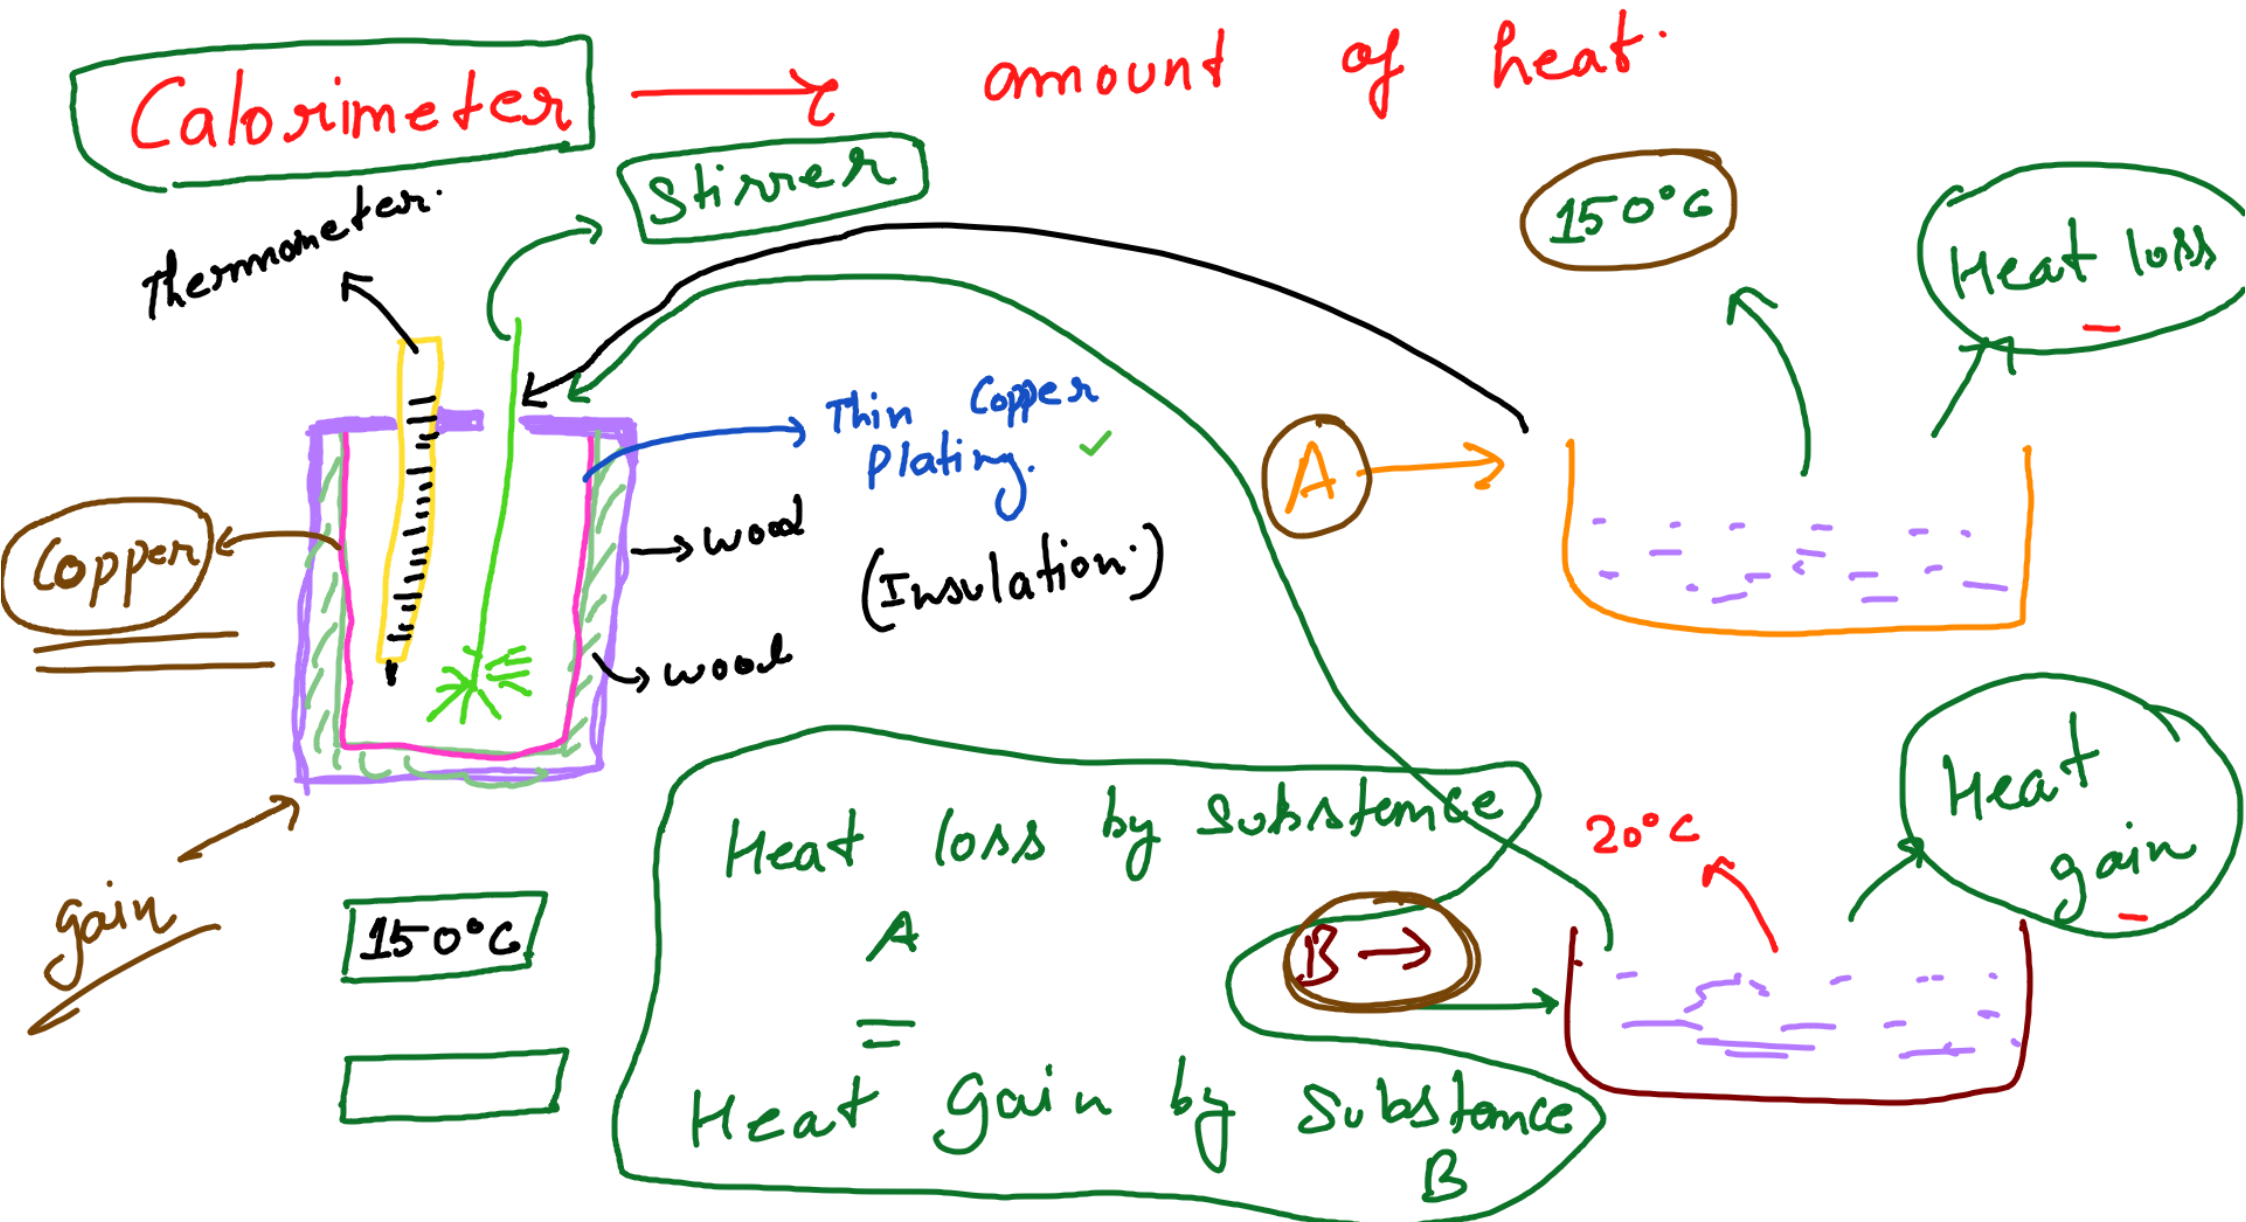 Calorimeter → amount of heat.
Stirrer
Thermometer.
150°C
Heat loss
Thin Copper
Plating. ✓
A →
Copper
→ wood
(Insulation.)
→ wood
Heat
gain
20°C
Heat loss by Substance
A
=
Heat gain by Substance
B
B →
gain
150°C